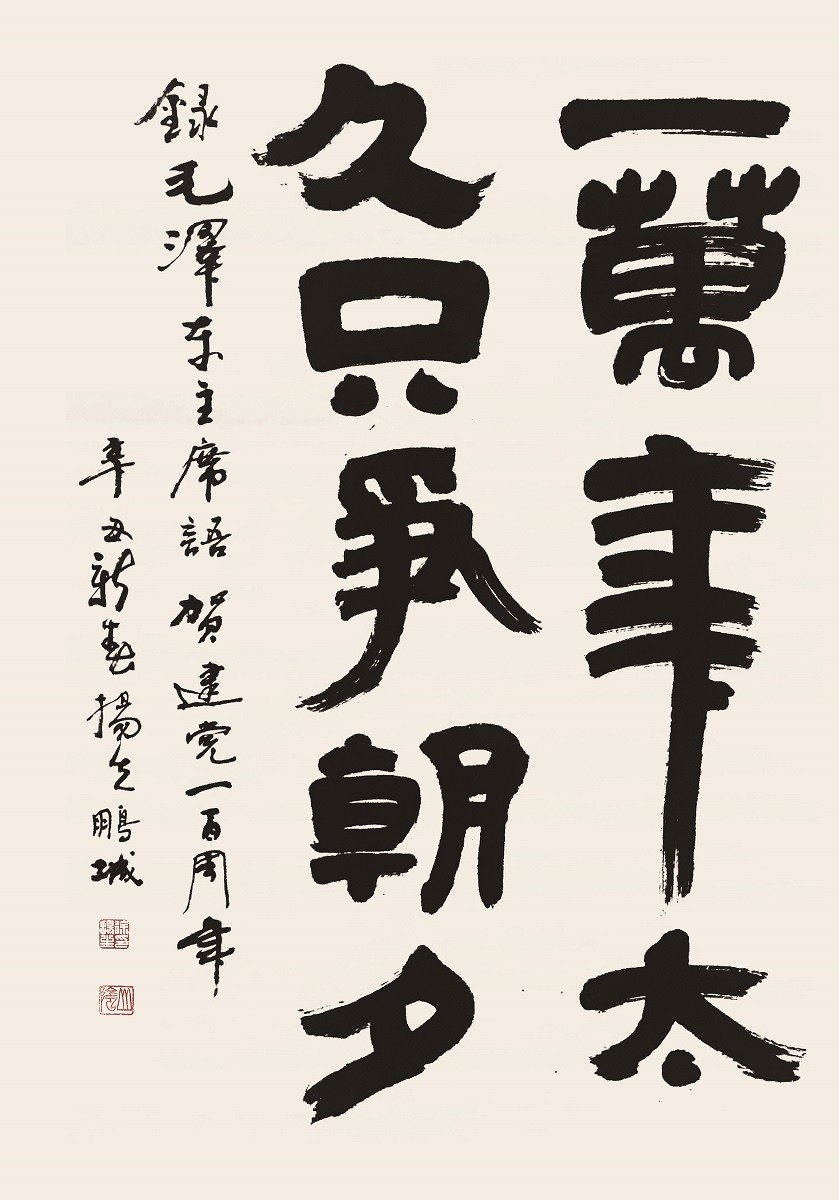 一萬年太
久只爭朝夕
録毛澤东主席語 賀建党一百周年
辛丑新春揚之鵬城